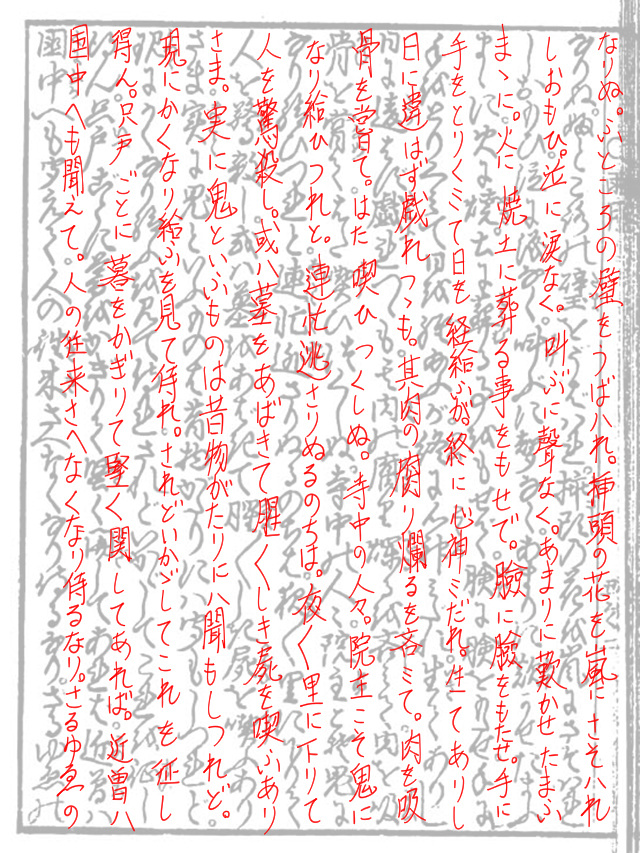 なりぬ。ふところの璧をうばハれ。挿頭の花を嵐にさそハれ
しおもひ。泣に涙なく。叫ぶに聲なく。あまりに歎かせたまふ
まゝに。火に焼土に葬る事をもせで。臉に臉をもたせ。手に
手をとりくミて日を経給ふが。終に心神ミだれ。生てありし
日に違はず戯れつゝも。其肉の腐り爛るを吝ミて。肉を吸
骨を嘗て。はた喫ひつくしぬ。寺中の人々。院主こそ鬼に
なり給ひつれと。連忙逃さりぬるのちは。夜〱里に下りて
人を驚殺し。或ハ墓をあばきて腥〱しき屍を喫ふあり
さま。実に鬼といふものは昔物がたりにハ聞もしつれど。
現にかくなり給ふを見て侍れ。されどいかゞしてこれを征し
得ん。只戸ごとに暮をかぎりて堅く関してあれば。近曽ハ
国中へも聞えて。人の往来さへなくなり侍るなり。さるゆゑの